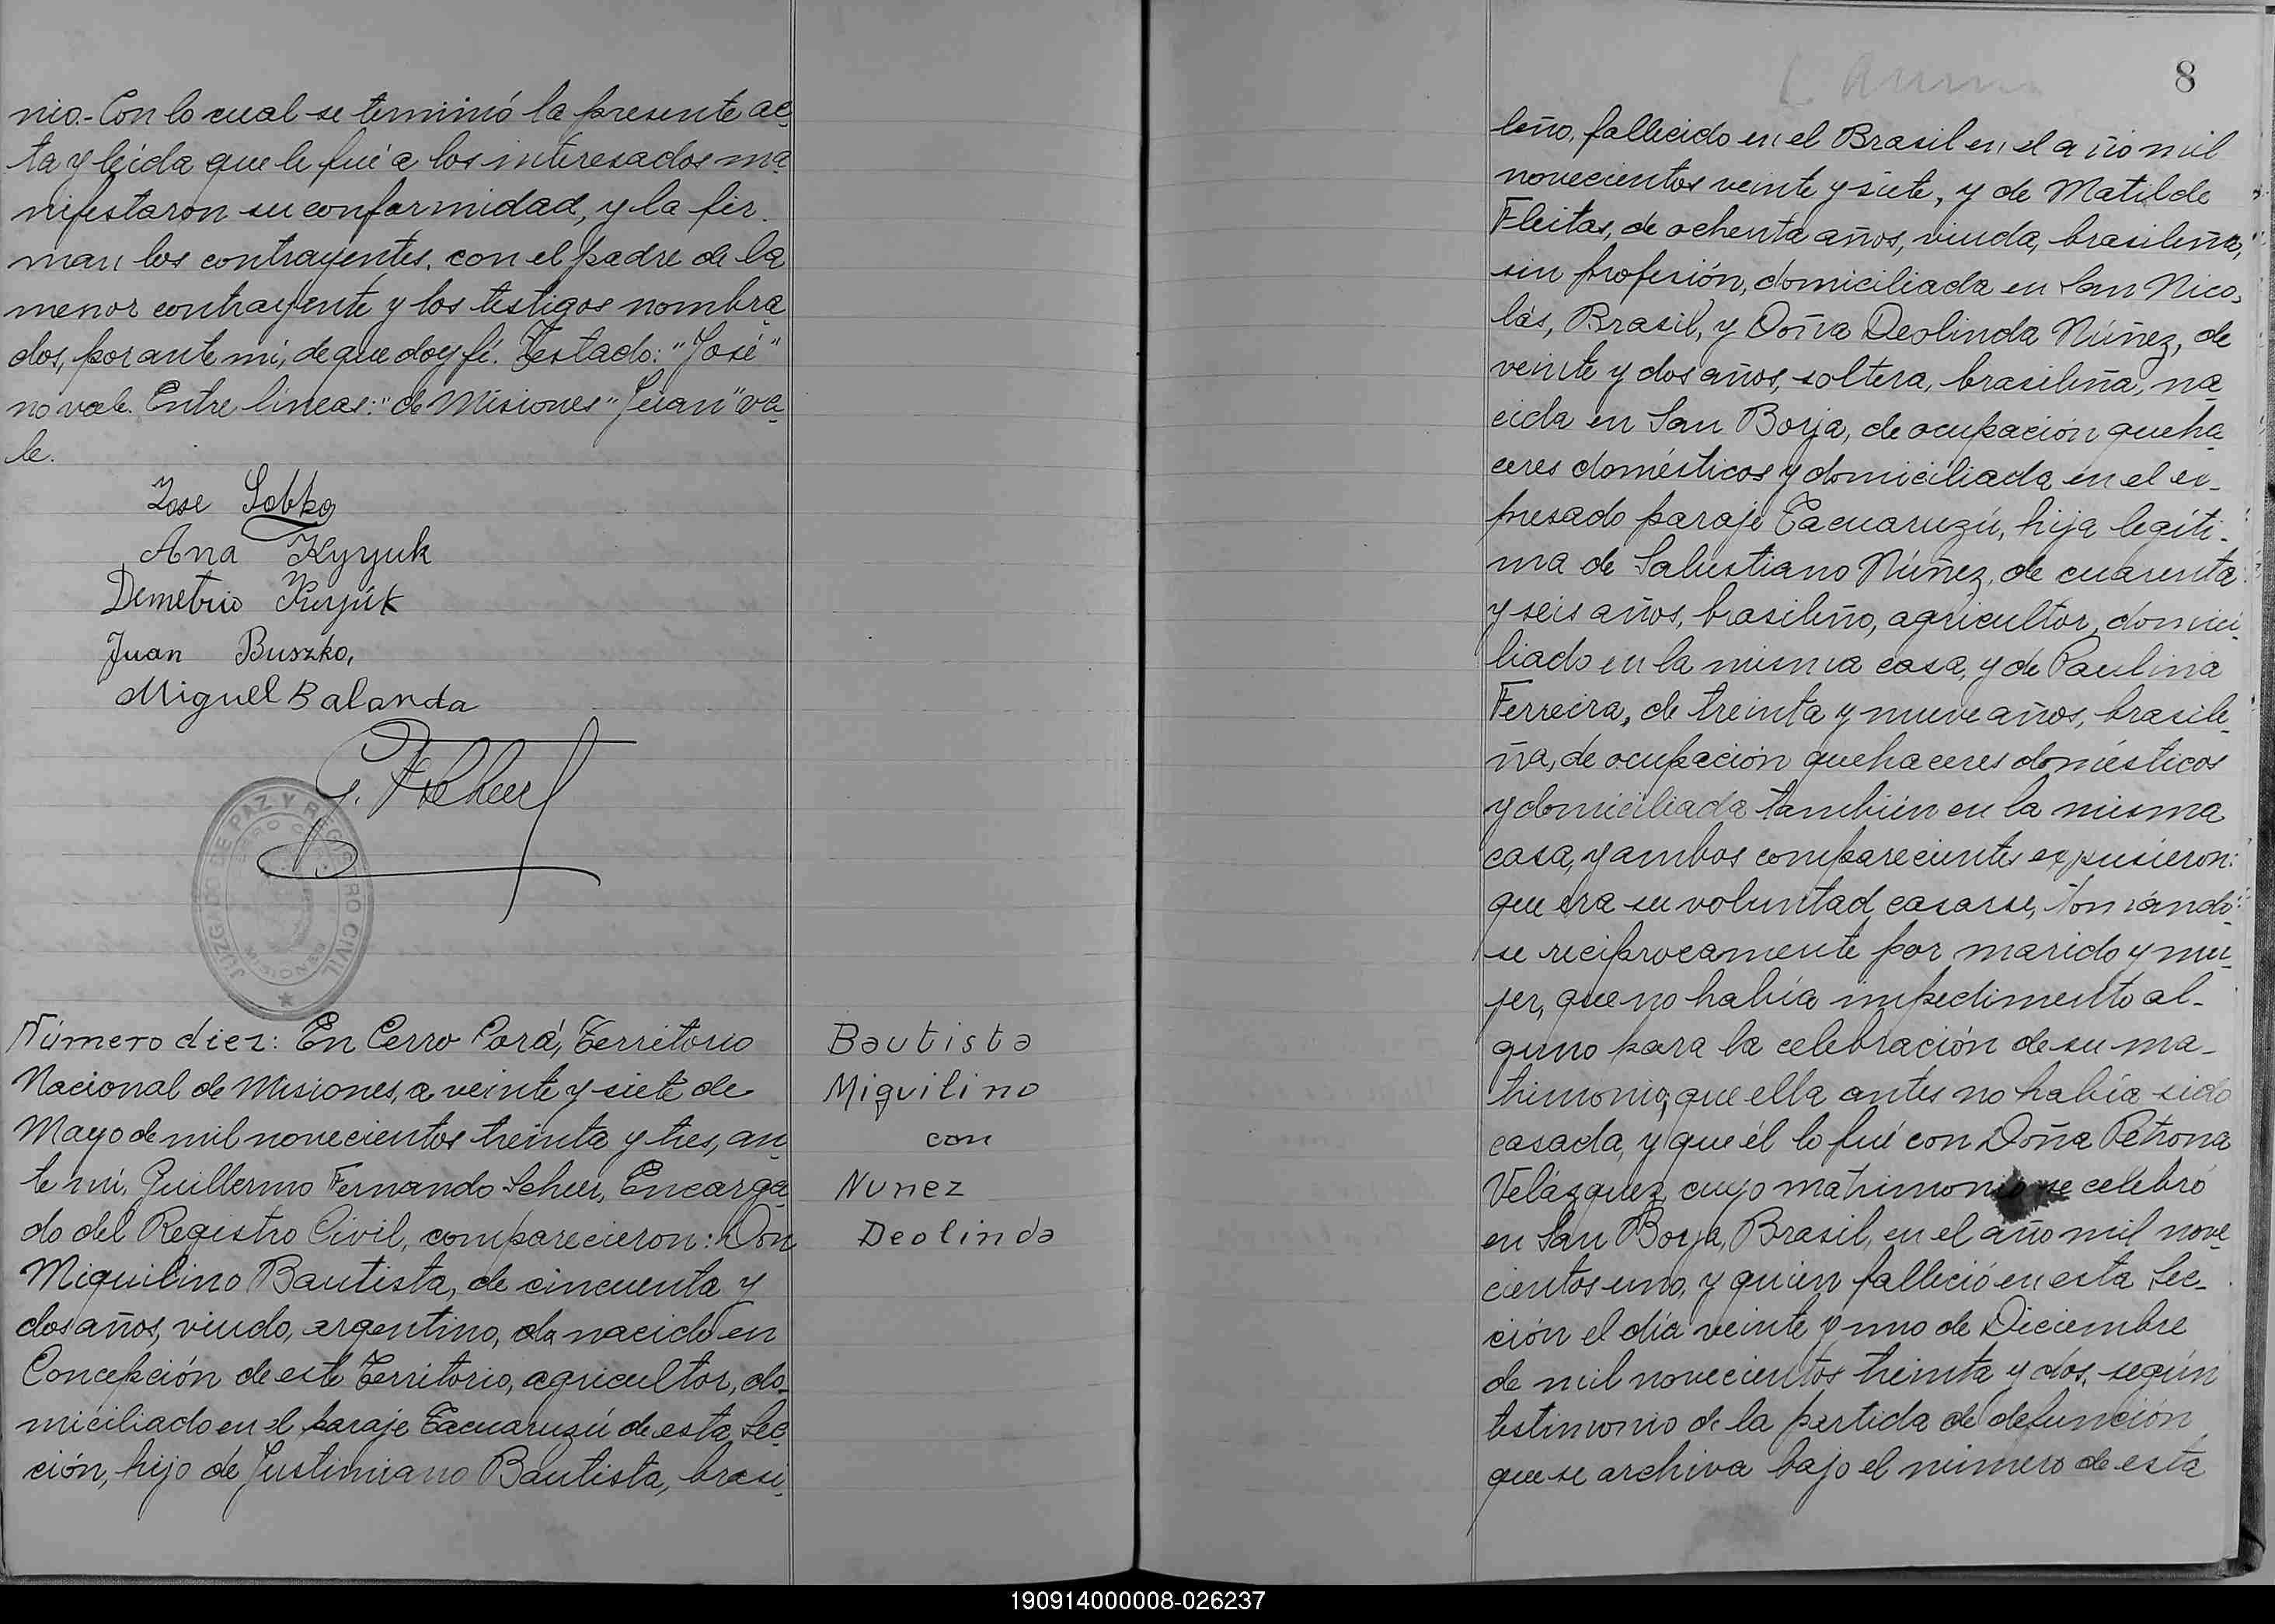 nio.- Con lo cual se terminó la presente ac-
ta y leída que le fué a los interesados ma-
nifestaron su conformidad, y la fir-
man los contrayentes, con el padre de la
menor contrayente y los testigos nombra-
dos, por ante mi, de que doy fé. Testado: "José"
no vale. Entre líneas: "de Misiones" "Juan" va-
le.
Jose Sobko
Ana Kyryuk
Demetrio Kuryúk
Juan Buszko,
Miguel Balanda
G. F. Scheer
JUZGADO DE PAZ Y REGISTRO CIVIL
CERRO CORA
MISIONES
Número diez: En Cerro Corá, Territorio
Nacional de Misiones, a veinte y siete de
Mayo de mil novecientos treinta y tres, an-
te mí, Guillermo Fernando Scheer, Encarga-
do del Registro Civil, comparecieron: Don
Miquilino Bautista, de cincuenta y
dos años, viudo, argentino, nacido en
Concepción de este Territorio, agricultor, do-
miciliado en el paraje Tacuaruzú de esta Sec-
ción, hijo de Justimiano Bautista, brasi-
Bautista
Miquilino
con
Nunez
Deolinda
8
leño, fallecido en el Brasil en el año mil
novecientos veinte y siete, y de Matilde
Fleitas, de ochenta años, viuda, brasileña,
sin profesión, domiciliada en San Nico-
lás, Brasil, y Doña Deolinda Núñez, de
veinte y dos años, soltera, brasileña, na-
cida en San Borja, de ocupación queha-
ceres domésticos y domiciliada en el ex-
presado paraje Tacuaruzú, hija legíti-
ma de Salustiano Núñez, de cuarenta
y seis años, brasileño, agricultor, domici-
liado en la misma casa, y de Paulina
Ferreira, de treinta y nueve años, brasile-
ña, de ocupación quehaceres domésticos
y domiciliada también en la misma
casa, y ambos comparecientes expusieron:
que era su voluntad casarse, tomándo-
se reciprocamente por marido y mu-
jer, que no había impedimento al-
guno para la celebración de su ma-
trimonio; que ella antes no había sido
casada, y que él lo fué con Doña Petrona
Velázquez, cuyo matrimonio se celebró
en San Borja, Brasil, en el año mil nove-
cientos uno, y quien falleció en esta Sec-
ción el día veinte y uno de Diciembre
de mil novecientos treinta y dos, según
testimonio de la partida de defunción
que se archiva bajo el número de esta
190914000008-026237